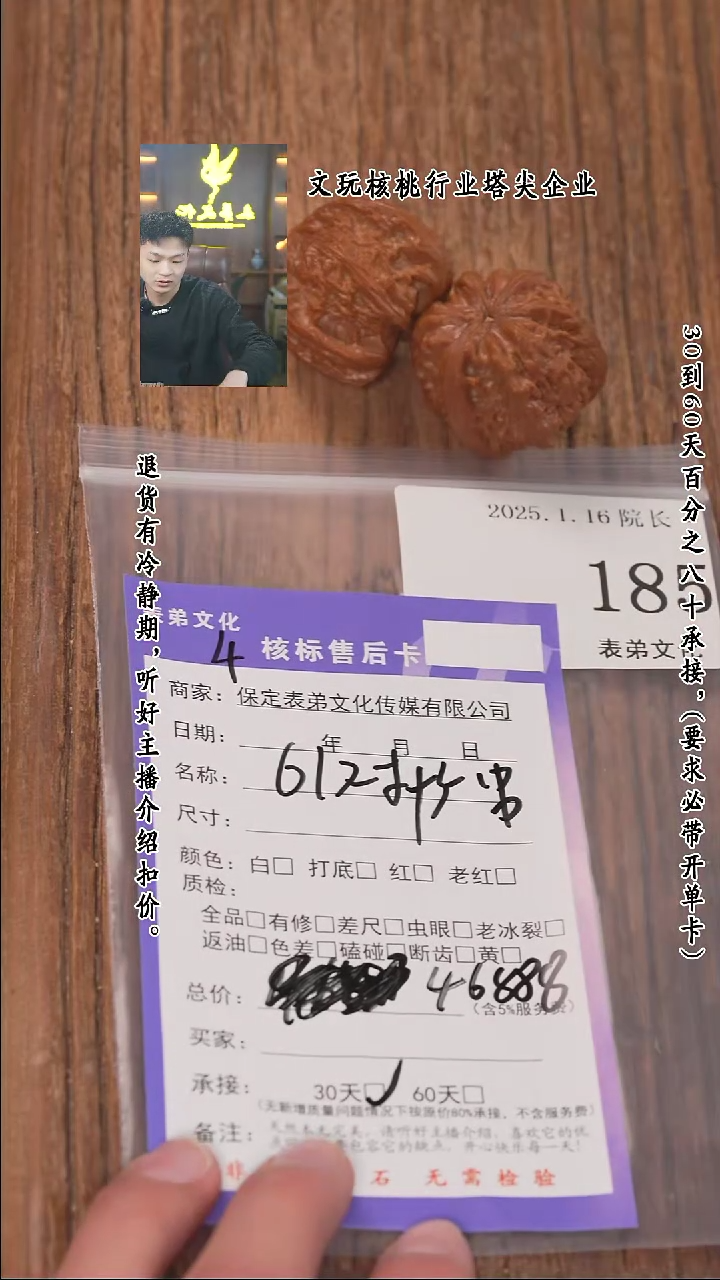 文玩核桃行业塔尖企业
30到60天百分之八十承接，（要求必带开单卡）
退货有冷静期，听好主播介绍扣价。
2025.1.16 院长
185
表弟文
表弟文化
4
核标售后卡
商家：保定表弟文化传媒有限公司
日期： 年 月 日
名称：612
尺寸：
颜色：白□ 打底□ 红□ 老红□
质检：
全品□有修□差尺□虫眼□老冰裂□
返油□色差□磕碰□断齿□黄□
总价： 46888
（含5%服务费）
买家：
承接： 30天☑ 60天□
（无新增质量问题情况下按原价80%承接，不含服务费）
备注：天然本无完美，请听好主播介绍，喜欢它的优
包容它的缺点，开心快乐每一天！
非 石 无需检验